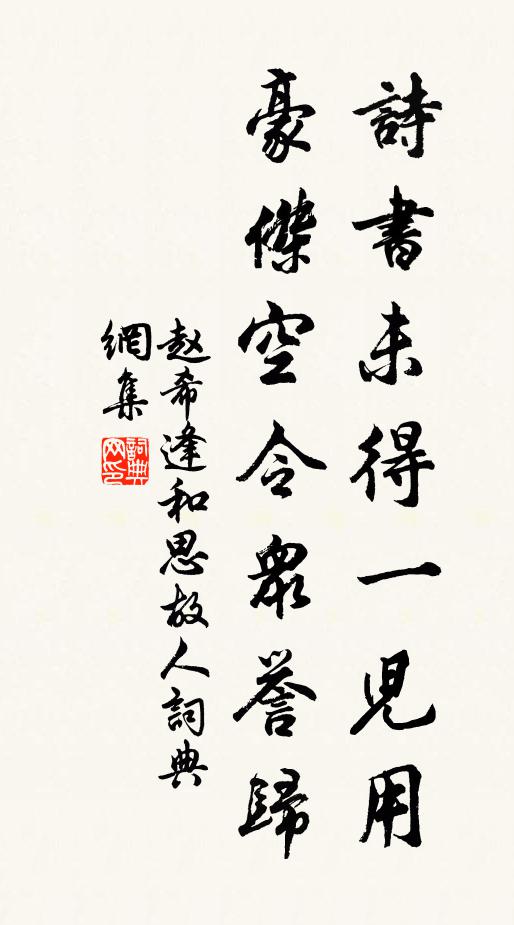 詩書未得一兒用
豪傑空令眾誉歸
赵希逢和思故人詞典
網集
詞典
网印